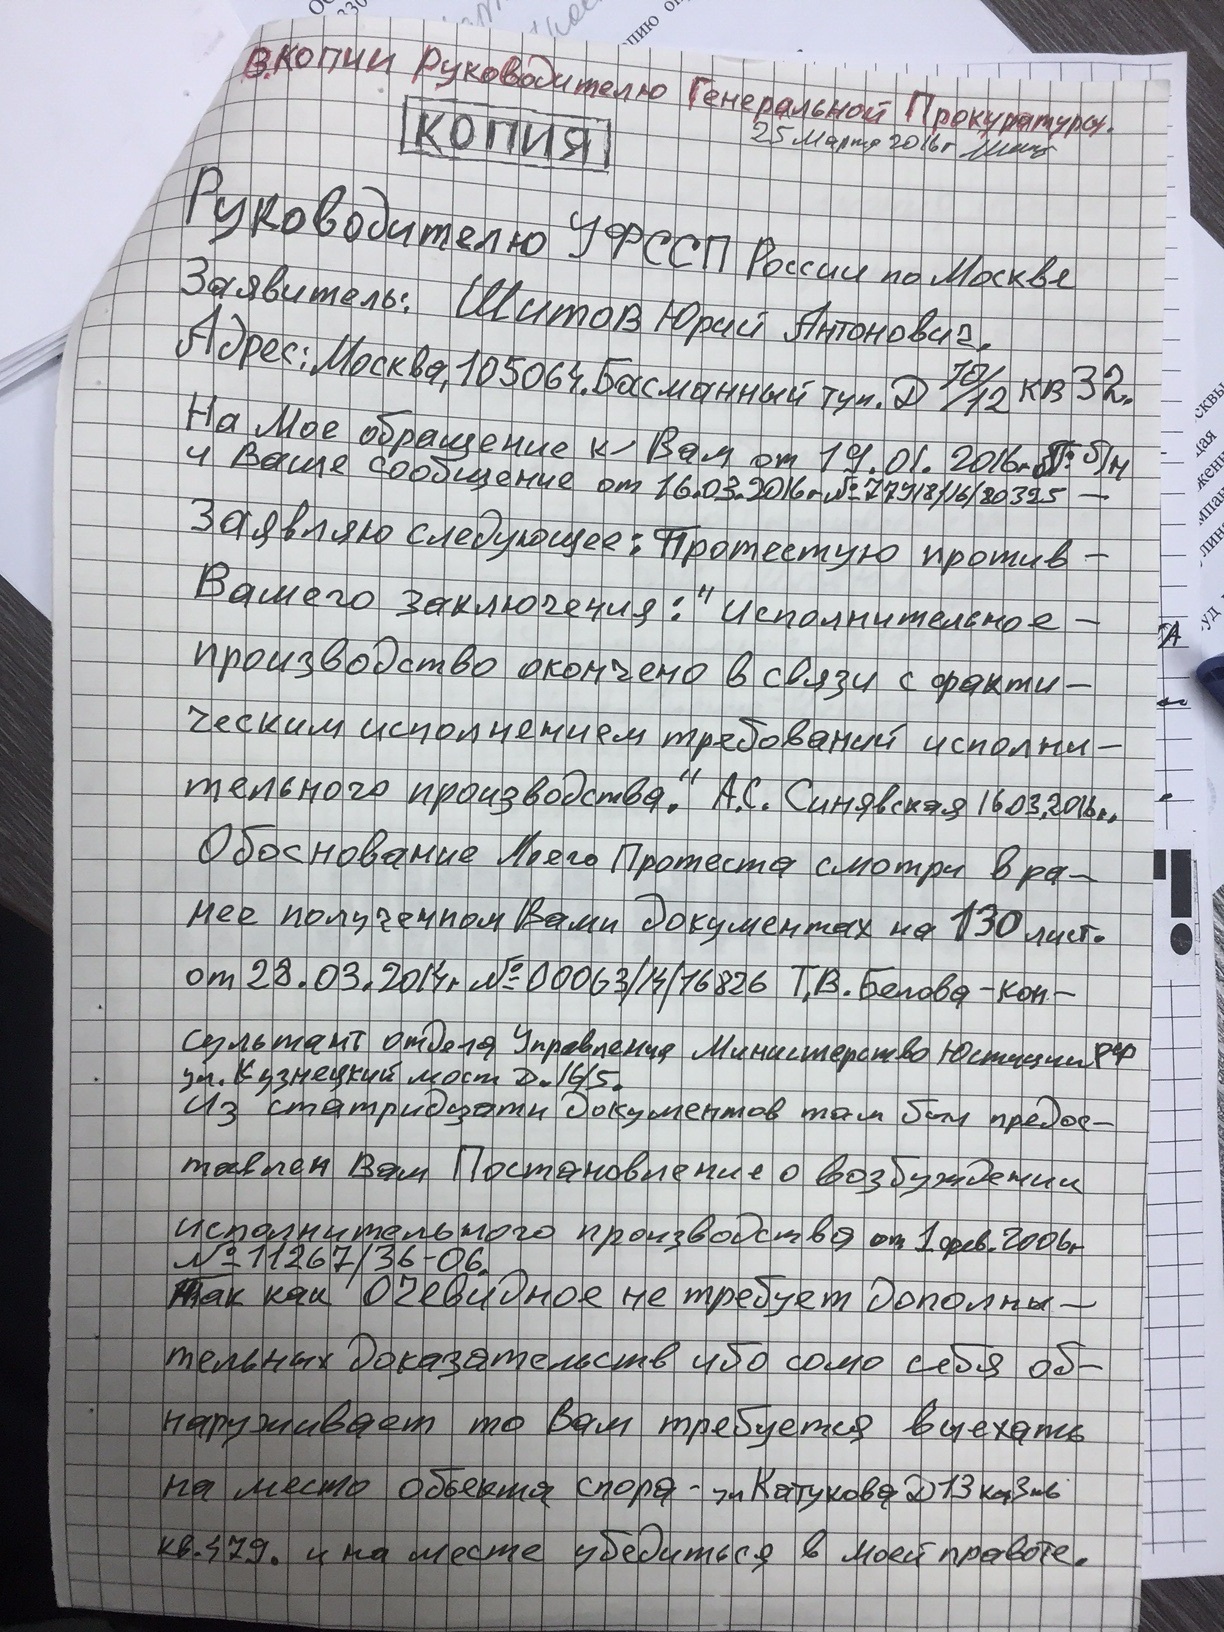 В. КОПИИ Руководителю Генеральной Прокуратуры.
КОПИЯ
25 Марта 2016г
Руководителю УФССП России по Москве
Заявитель: Шитов Юрий Антонович.
Адрес: Москва, 105064. Басманный туп. Д 10/12 кв 32.
На Мое обращение к Вам от 19.01.2016г. № б/н
и Ваше сообщение от 16.03.2016г №77918/16/80325 —
Заявляю следующее: Протестую против —
Вашего заключения: "исполнительное —
производство окончено в связи с факти—
ческим исполнением требований исполни—
тельного производства." А.С. Синявская 16.03.2016г.
Обоснование Моего Протеста смотри в ра—
нее полученном Вами документах на 130 лист.
от 28.03.2014г №00063/14/16826 Т.В. Белова - кон—
сультант отдела Управления Министерство Юстиции РФ
ул. Кузнецкий мост Д. 16/5.
Из статридцати документов там был предос—
тавлен Вам Постановление о возбуждении
исполнительного производства от 1 фев. 2006г
№11267/36-06.
Так как ОЧЕВИДНОЕ не требует дополны—
тельных доказательств ибо само себя об—
наруживает то Вам требуется выехать
на место объекта спора - ул Катукова Д 13
кв. 479. и на месте убедиться в моей правоте.